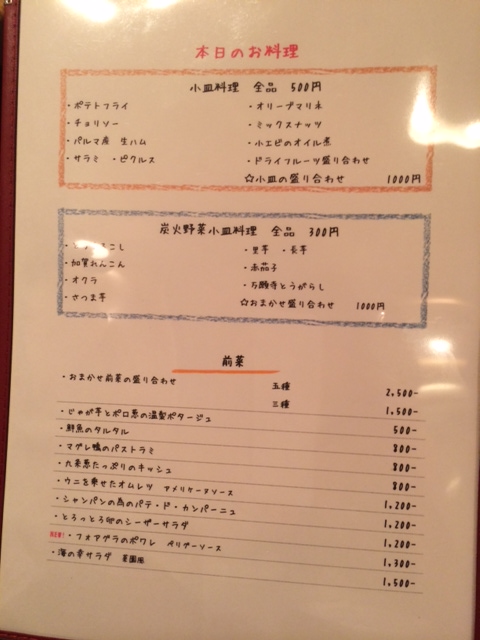 本日のお料理
小皿料理 全品 500円
・ポテトフライ ・オリーブマリネ
・チョリソー ・ミックスナッツ
・パルマ産 生ハム ・小エビのオイル煮
・サラミ ・ピクルス ・ドライフルーツ盛り合わせ
☆小皿の盛り合わせ 1000円
炭火野菜小皿料理 全品 300円
・里芋 ・長芋
・加賀れんこん ・赤茄子
・オクラ ・万願寺とうがらし
・さつま芋 ☆おまかせ盛り合わせ 1000円
前菜
・おまかせ前菜の盛り合わせ 五種 2,500-
三種 1,500-
・じゃが芋とポロ葱の温製ポタージュ 500-
・鮮魚のタルタル 800-
・マグレ鴨のパストラミ 800-
・九条葱たっぷりのキッシュ 800-
・ウニを乗せたオムレツ アメリケーヌソース 1,200-
・シャンパンの為のパテ・ド・カンパーニュ 1,200-
・とろっとろ卵のシーザーサラダ 1,200-
NEW!・フォアグラのポワレ ペリグーソース 1,300-
・海の幸サラダ 菜園風 1,500-